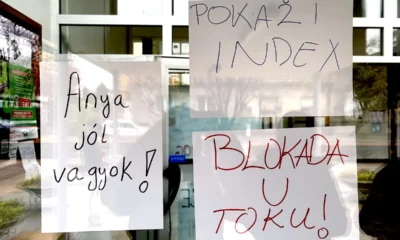 Anya
jól
vagyok!
POKAŽI
INDEX
BLOKADA
U
TOKU!